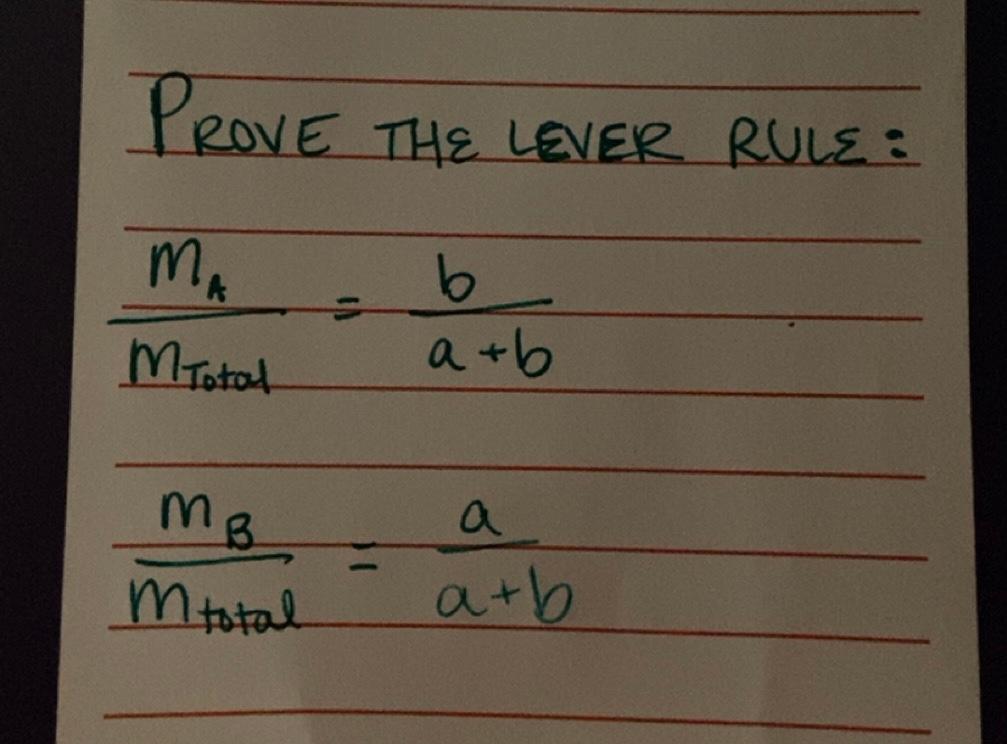 PROVE THE LEVER RULE:
m_A / m_Total = b / a+b
m_B / m_total = a / a+b